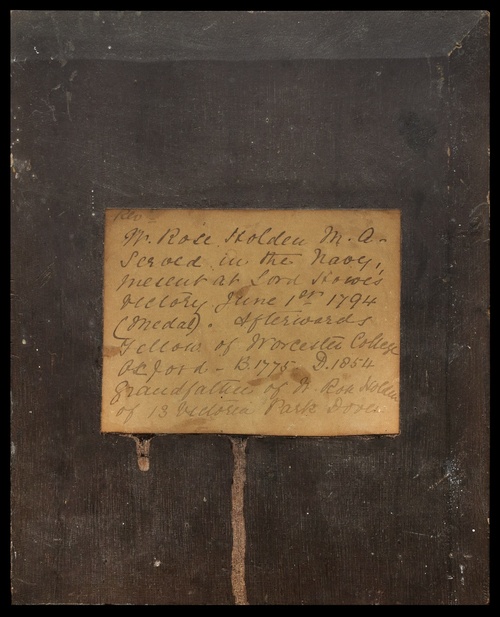 Rev^d
W. Rose Holden M. A.
Served in the Navy,
present at Lord Howe's
Victory June 1st 1794
(Medal). Afterwards
Fellow of Worcester College
Oxford - B. 1775. D. 1854
Grandfather of W. Rose Holden
of 13 Victoria Park Dover